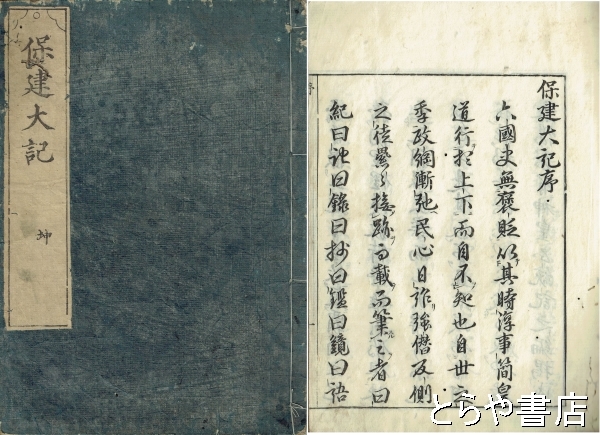 保建大記
坤
保建大記序
六國史無褒貶以其時淳事簡皇
道行於上下而自不知也自世之
季政綱漸弛民心日詐強僭反側
之徒纍々接跡而載而筆之者曰
紀曰記曰錄曰抄曰鑑曰鏡曰語
とらや書店